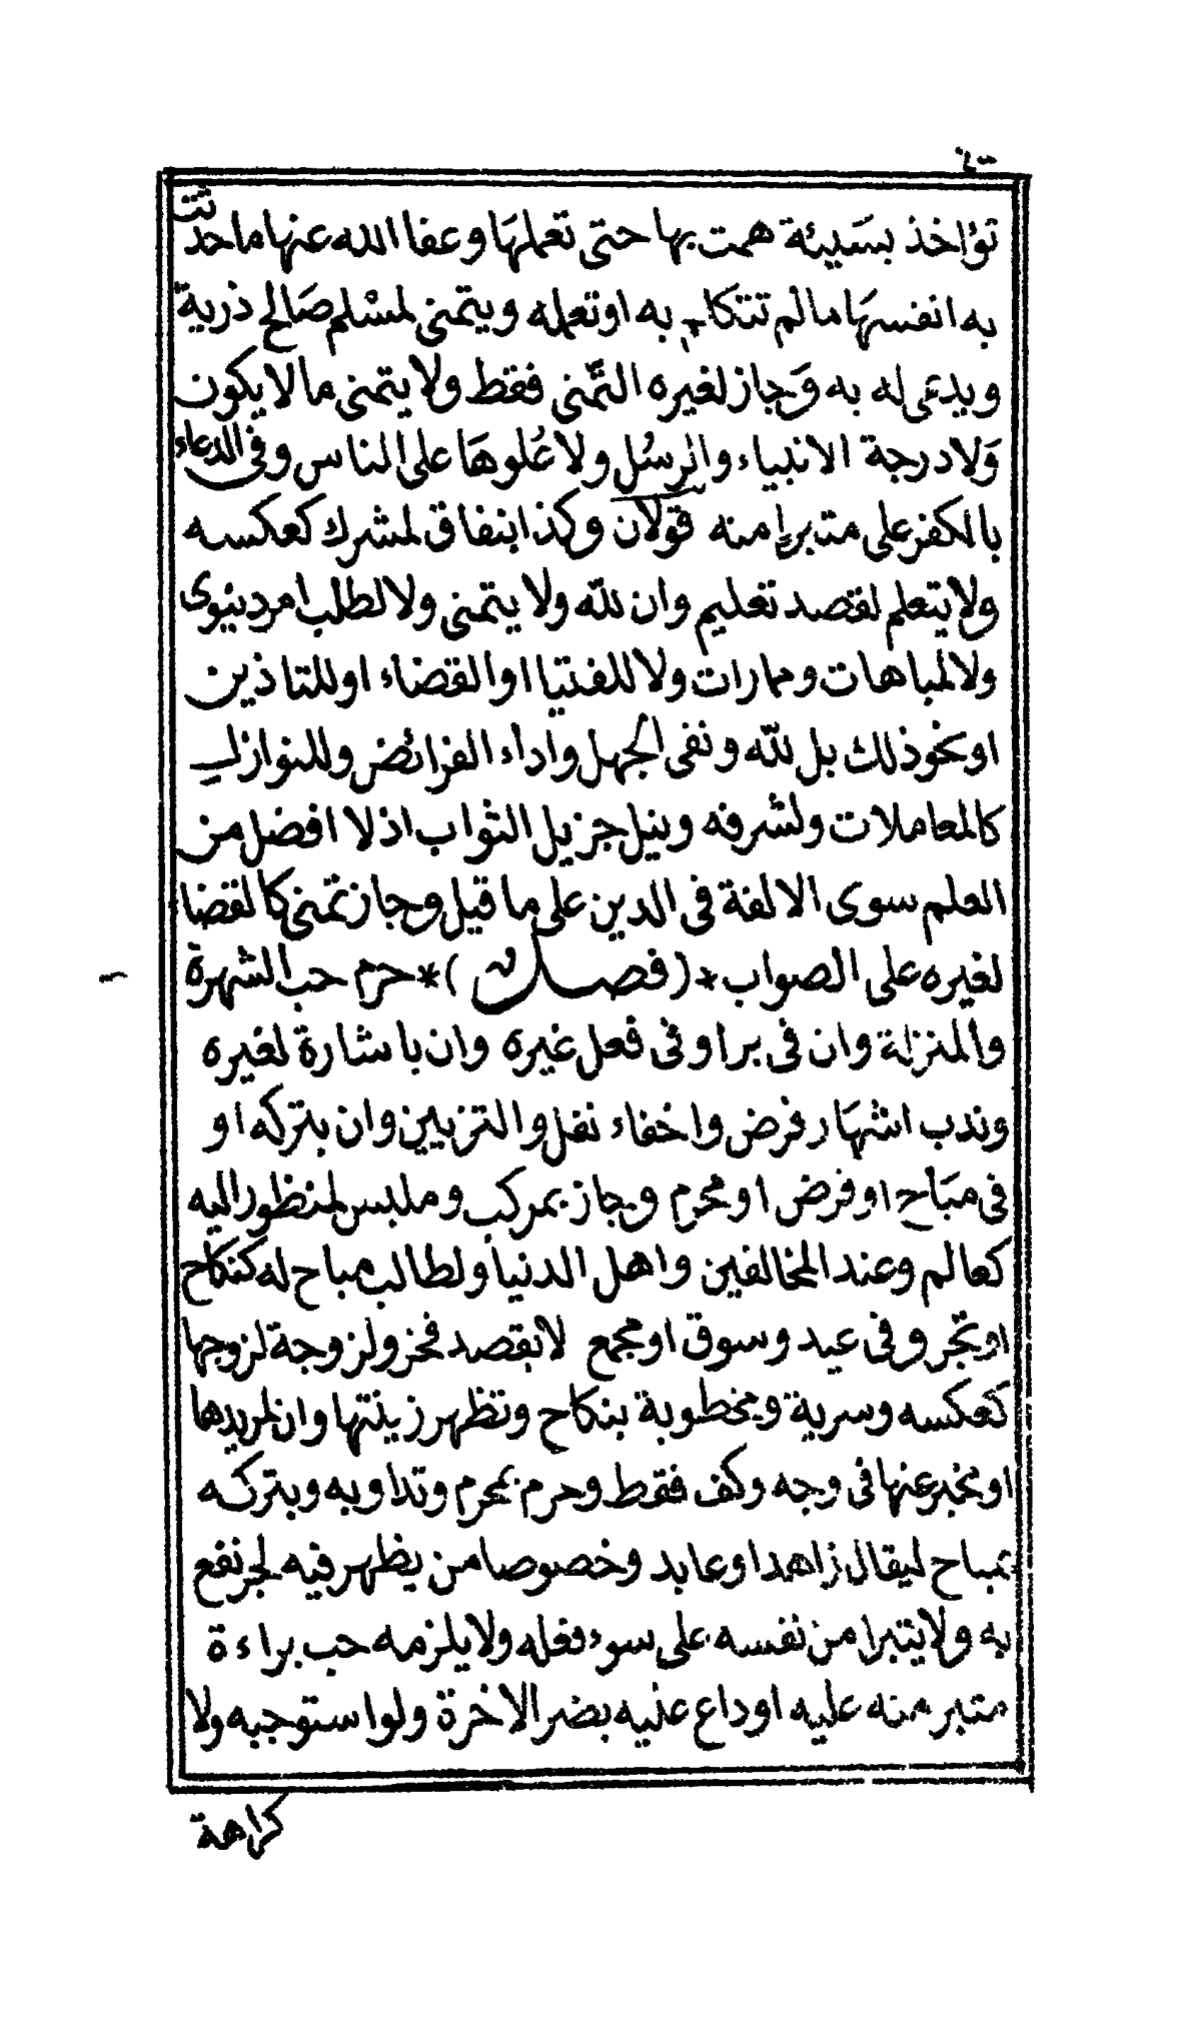 تؤاخذ بسيئة همت بها حتى تعملها وعفا الله عنها ما حدثت
به انفسها مالم تتكلم به او تعمله ويتمنى لمسلم صالح ذرية
ويدعى له به وجاز لغيره التمنى فقط ولا يتمنى مالا يكون
ولا درجة الانبياء والرسل ولا علوها على الناس وفى الدعاء
بالكفر على متبرإ منه قولان وكذا بنفاق لمشرك كعكسه
ولا يتعلم لقصد تعليم وان لله ولا يتمنى ولا لطلب امر دنيوى
ولا لمباهات وممارات ولا للفتيا او القضاء او للتاذين
او نحو ذلك بل لله ونفى الجهل واداء الفرائض وللنوازل
كالمعاملات ولشرفه ونيل جزيل الثواب اذ لا افضل من
العلم سوى الالفة فى الدين على ما قيل وجاز تمنى كالقضا
لغيره على الصواب *(فصل)* حرم حب الشهرة
والمنزلة وان فى برا وفى فعل غيره وان باشارة لغيره
وندب اشهار فرض واخفاء نفل والتزيين وان بتركه او
فى مباح او فرض او محرم وجاز بمركب وملبس لمنظور اليه
كعالم وعند المخالفين واهل الدنيا ولطالب مباح له كنكاح
او تجر وفى عيد وسوق او مجمع لا بقصد فخر ولزوجة لزوجها
كعكسه وسرية ومخطوبة بنكاح وتظهر زينتها وان لمريدها
او مخبر عنها فى وجه وكف فقط وحرم بمحرم وتداو به وبتركه
بمباح ليقال زاهد او عابد وخصوصا من يظهر فيه لجر نفع
به ولا يتبرا من نفسه على سوء فعله ولا يلزمه حب براءة
متبر منه عليه او داع عليه بضر الاخرة ولو استوجبه ولا
كراهة